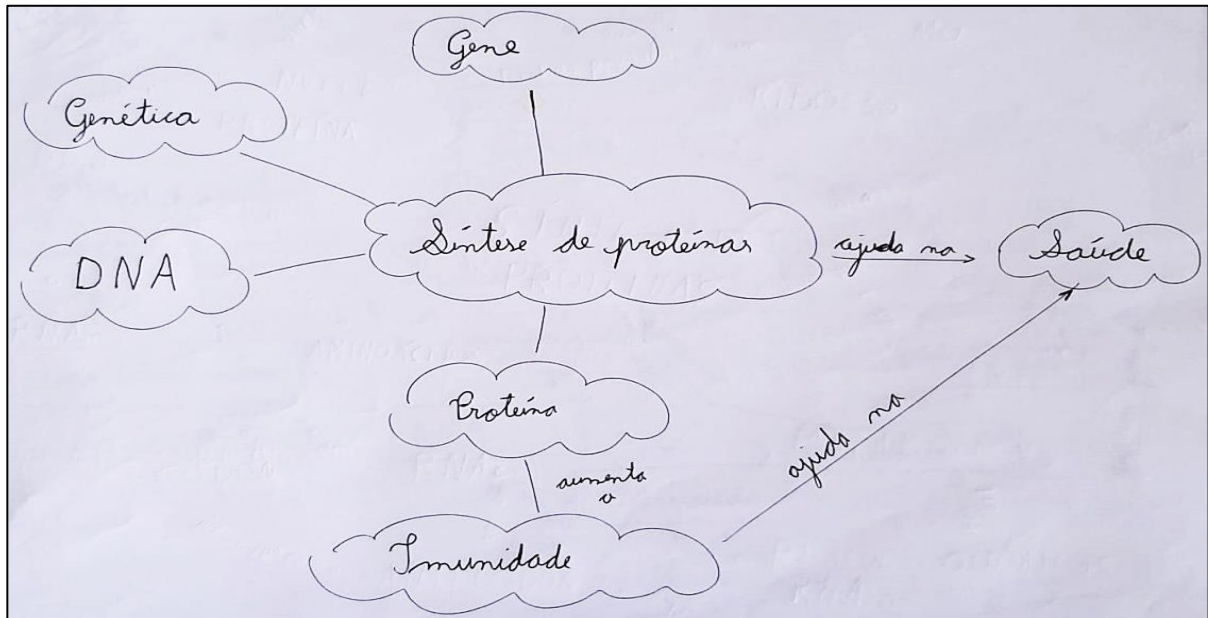 Gene
Genética
DNA
Síntese de proteínas
ajuda na
Saúde
Proteína
aumenta
a
Imunidade
ajuda na